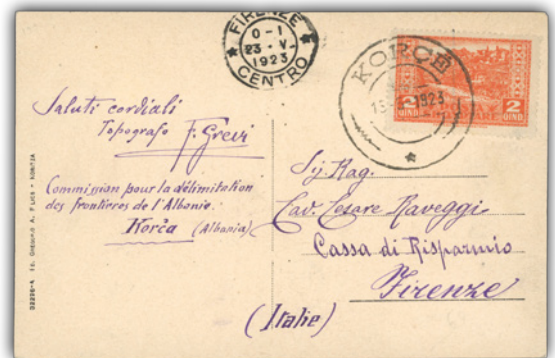 FIRENZE
0-1
23·V·
1923
CENTRO
KORCË
15 1923
2 2
QIND QIND
Saluti cordiali
Topografo F. Grevi
Commission pour la délimitation
des frontières de l'Albanie.
Korča (Albania)
Sig. Rag.
Cav. Cesare Raveggi
Cassa di Risparmio
Firenze
(Italie)